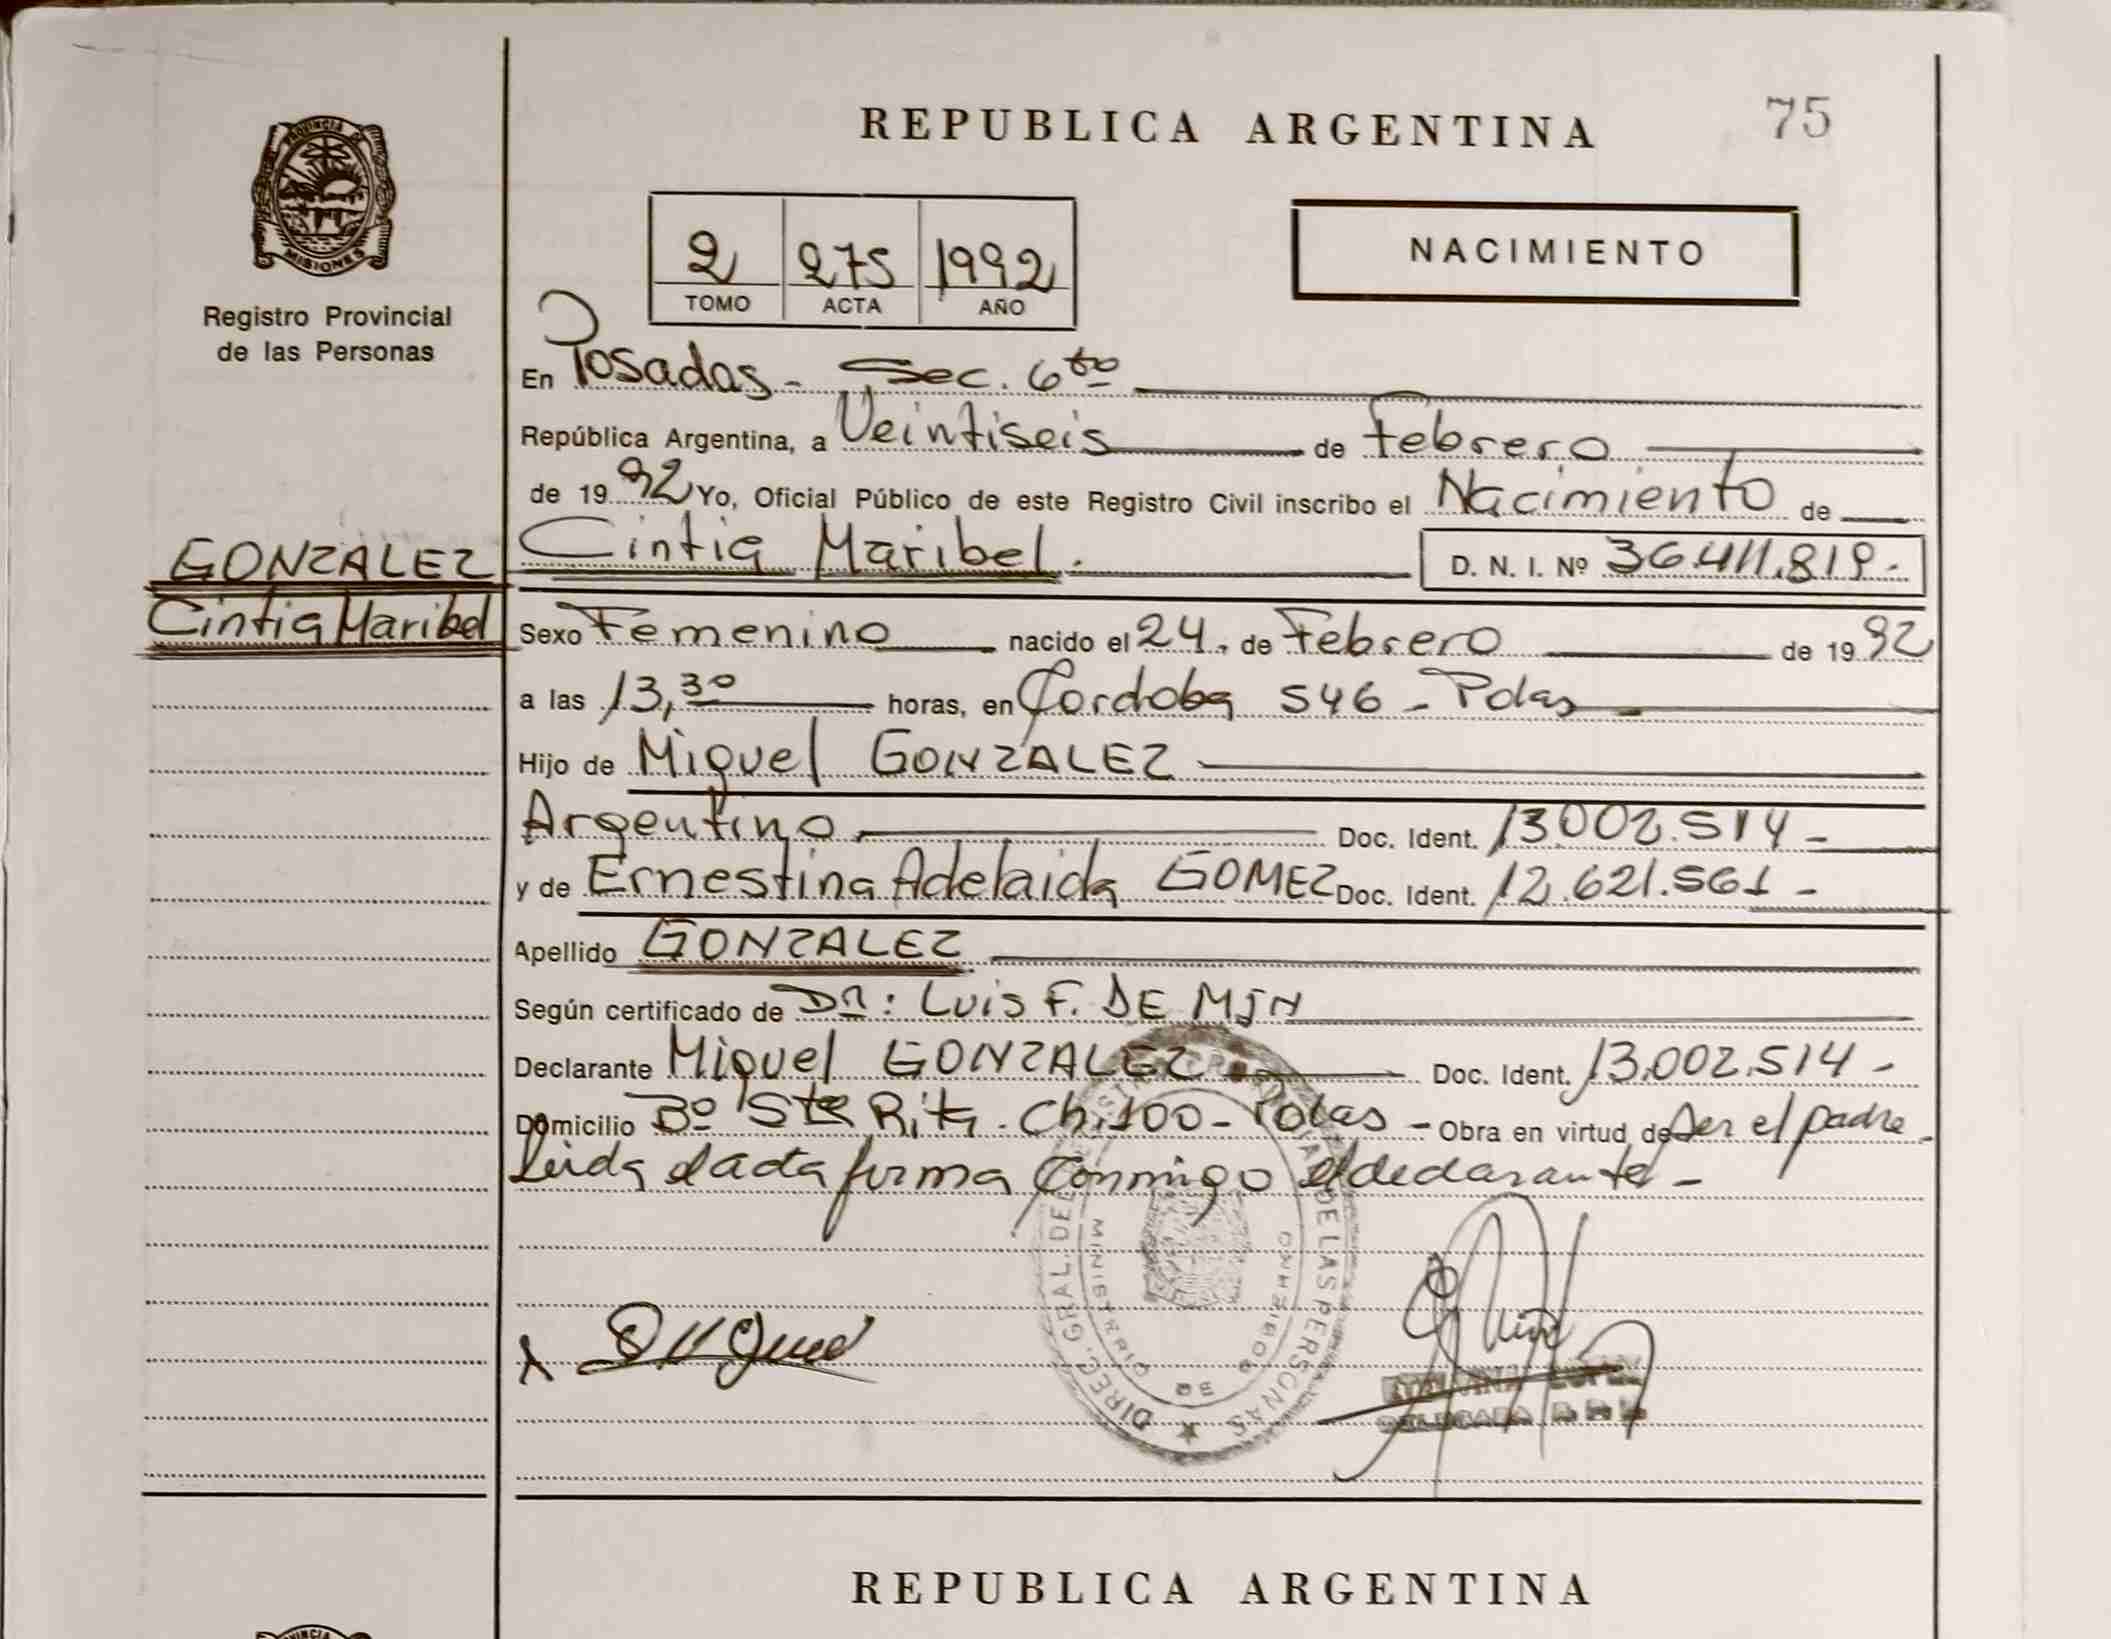 REPUBLICA ARGENTINA
75
PROVINCIA DE
MISIONES
Registro Provincial
de las Personas
2 275 1992
TOMO ACTA AÑO
NACIMIENTO
En Posadas - Sec. 6ta
República Argentina, a Veintiseis de Febrero
de 1992 Yo, Oficial Público de este Registro Civil inscribo el Nacimiento de
GONZALEZ
Cintia Maribel
Cintia Maribel.
D. N. I. Nº 36.411.819.-
Sexo Femenino nacido el 24. de Febrero de 1992
a las 13,30 horas, en Cordoba 546 - Pdas
Hijo de Miguel GONZALEZ
Argentino Doc. Ident. 13.002.514 -
y de Ernestina Adelaida GOMEZ Doc. Ident. 12.621.561 -
Apellido GONZALEZ
Según certificado de Dr: Luis F. DE
Declarante Miguel GONZALEZ Doc. Ident. 13.002.514 -
Domicilio Bº Sta Rita. Ch. 100 - Pdas - Obra en virtud de Ser el padre -
Leida el acta firma conmigo el declarante -
DIREC. GRAL. DE DE LAS PERSONAS
MINISTERIO DE GOBIERNO
LOPEZ
DELEGADA
REPUBLICA ARGENTINA